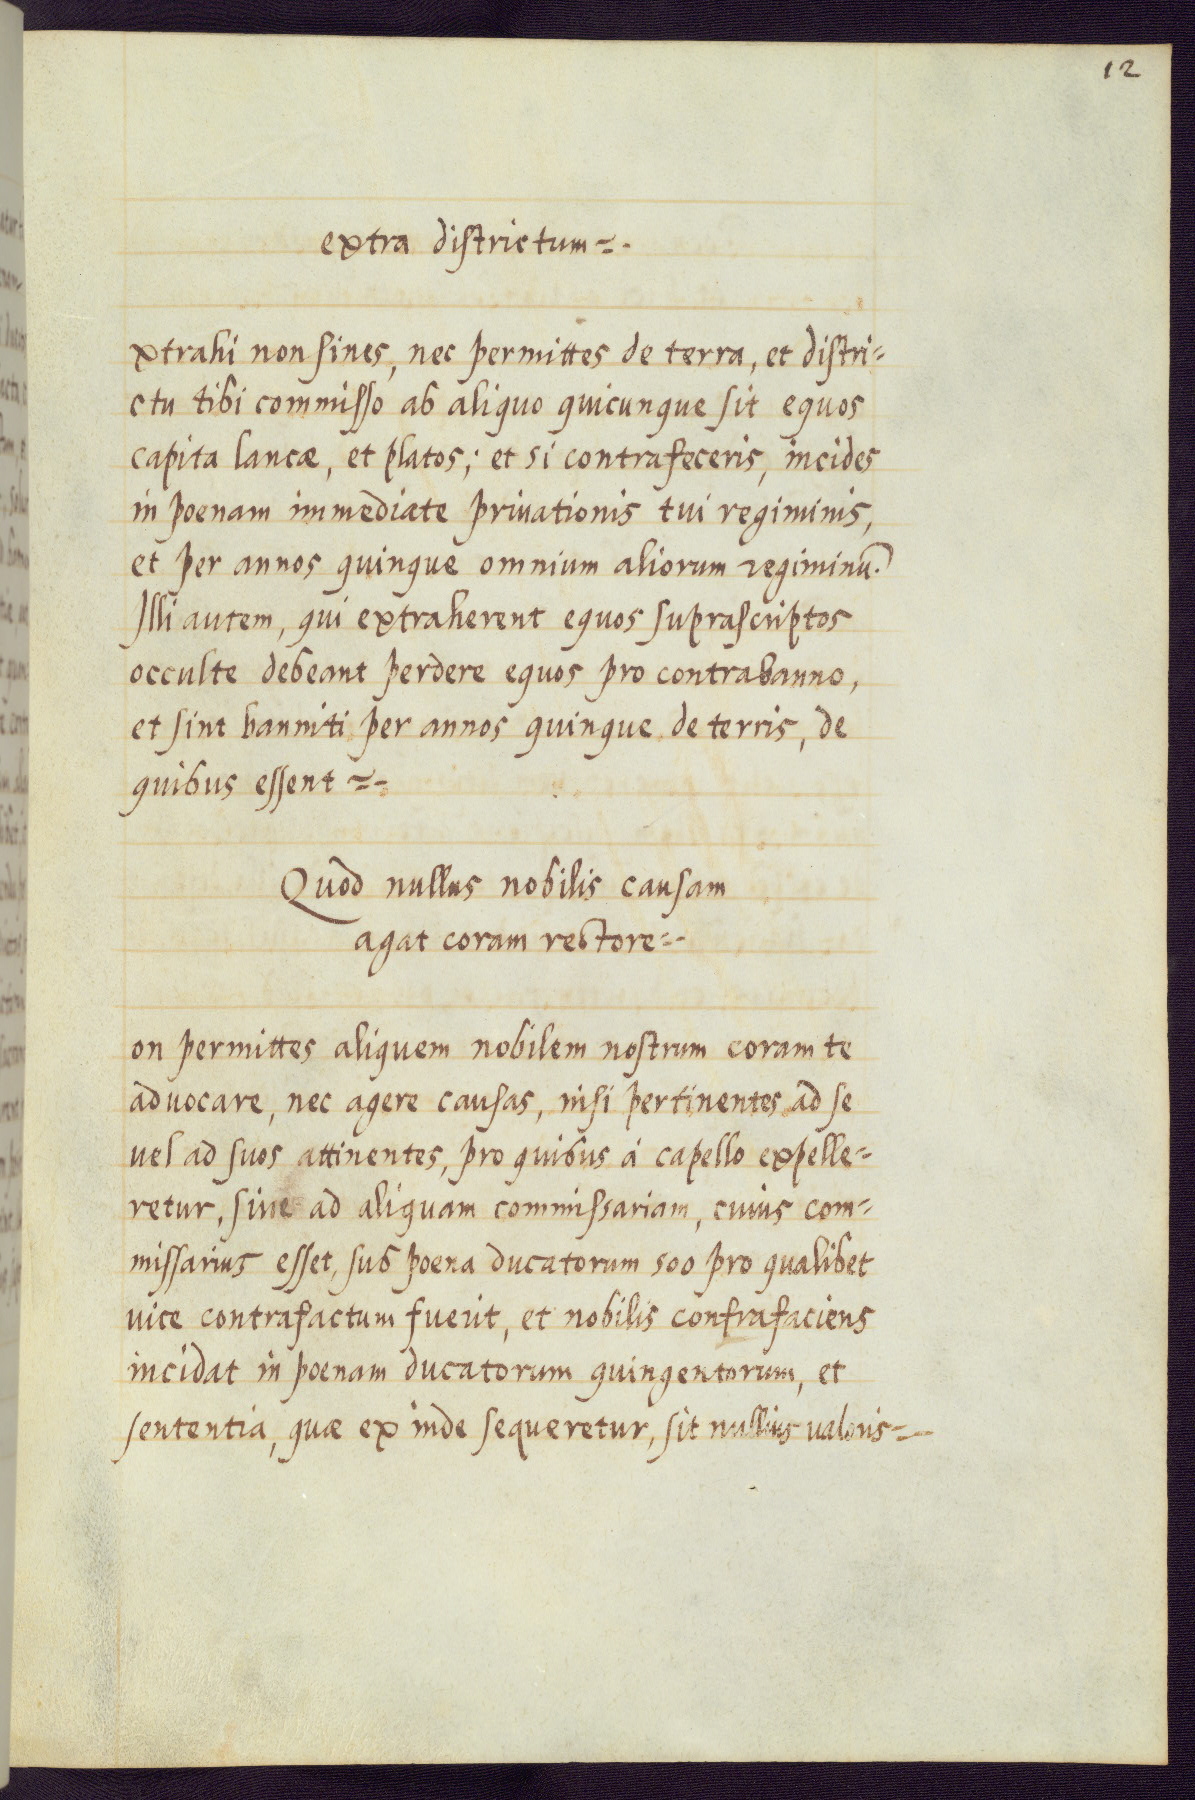 12
extra districtum=.
xtrahi non sines, nec permittes de terra, et distri=
ctu tibi commisso ab aliquo quicunque sit equos
capita lancæ, et platos; et si contrafeceris, incides
in poenam immediate privationis tui regiminis,
et per annos quinque omnium aliorum regiminū.
Illi autem, qui extraherent equos suprascriptos
occulte debeant perdere equos pro contrabanno,
et sint banniti per annos quinque de terris, de
quibus essent=.
Quod nullus nobilis causam
agat coram rectore=.
on permittes aliquem nobilem nostrum coram te
advocare, nec agere causas, nisi pertinentes ad se
vel ad suos attinentes, pro quibus á capello expelle=
retur, sive ad aliquam commissariam, cuius com=
missarius esset, sub poena ducatorum 500 pro qualibet
vice contrafactum fuerit, et nobilis contrafaciens
incidat in poenam ducatorum quingentorum, et
sententia, quæ ex inde sequeretur, sit nullius valoris=.